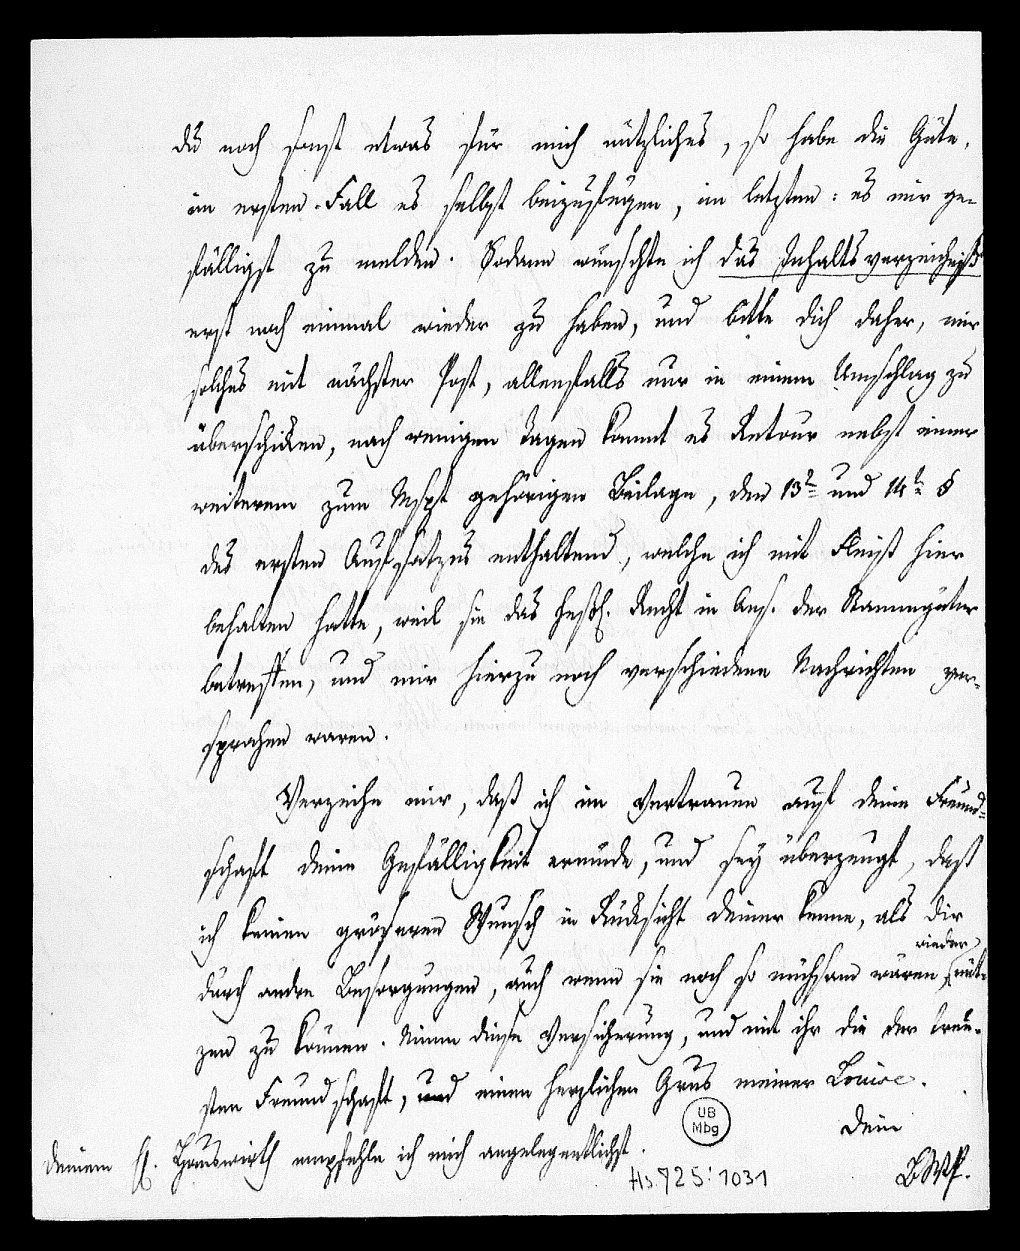 du noch sonst etwas für mich nützliches, so habe die Güte,
im ersten Fall es selbst beizufügen, im letzten: es mir ge-
fälligst zu melden. Sodann wünschte ich das Inhaltsverzeichniß
erst noch einmal wieder zu haben, und bitte dich daher, mir
solches mit nächster Post, allenfalls nur in einem Umschlag zu
überschicken, nach wenigen Tagen kommt es Retour nebst einer
weiterem zum Mspt gehörigen Beilage, den 13t und 14t §
des ersten Aufsatzes enthaltend, welche ich mit Fleiß hier
behalten hatte, weil sie das Heß. Recht in Ans. der Stammgüter
betreffen, und mir hierzu noch verschiedene Nachrichten ver-
sprochen waren.
Verzeihe mir, daß ich im Vertrauen auf deine Freund-
schaft deine Gefälligkeit ermüde, und sey überzeugt, daß
ich keinen gröseren Wunsch in Rücksicht deiner kenne, als dir
wieder
durch andre Besorgungen, auch wenn sie noch so mühsam wären, nüt-
zen zu können. Nimm diese Versicherung, und mit ihr die der treu-
sten Freundschaft, und einen herzlichen Grus meiner Louise.
Dein
deinem H. Hauswirth empfehle ich mich angelegentlichst.
BWPf.
UB
Mbg
Hs. 725:1031